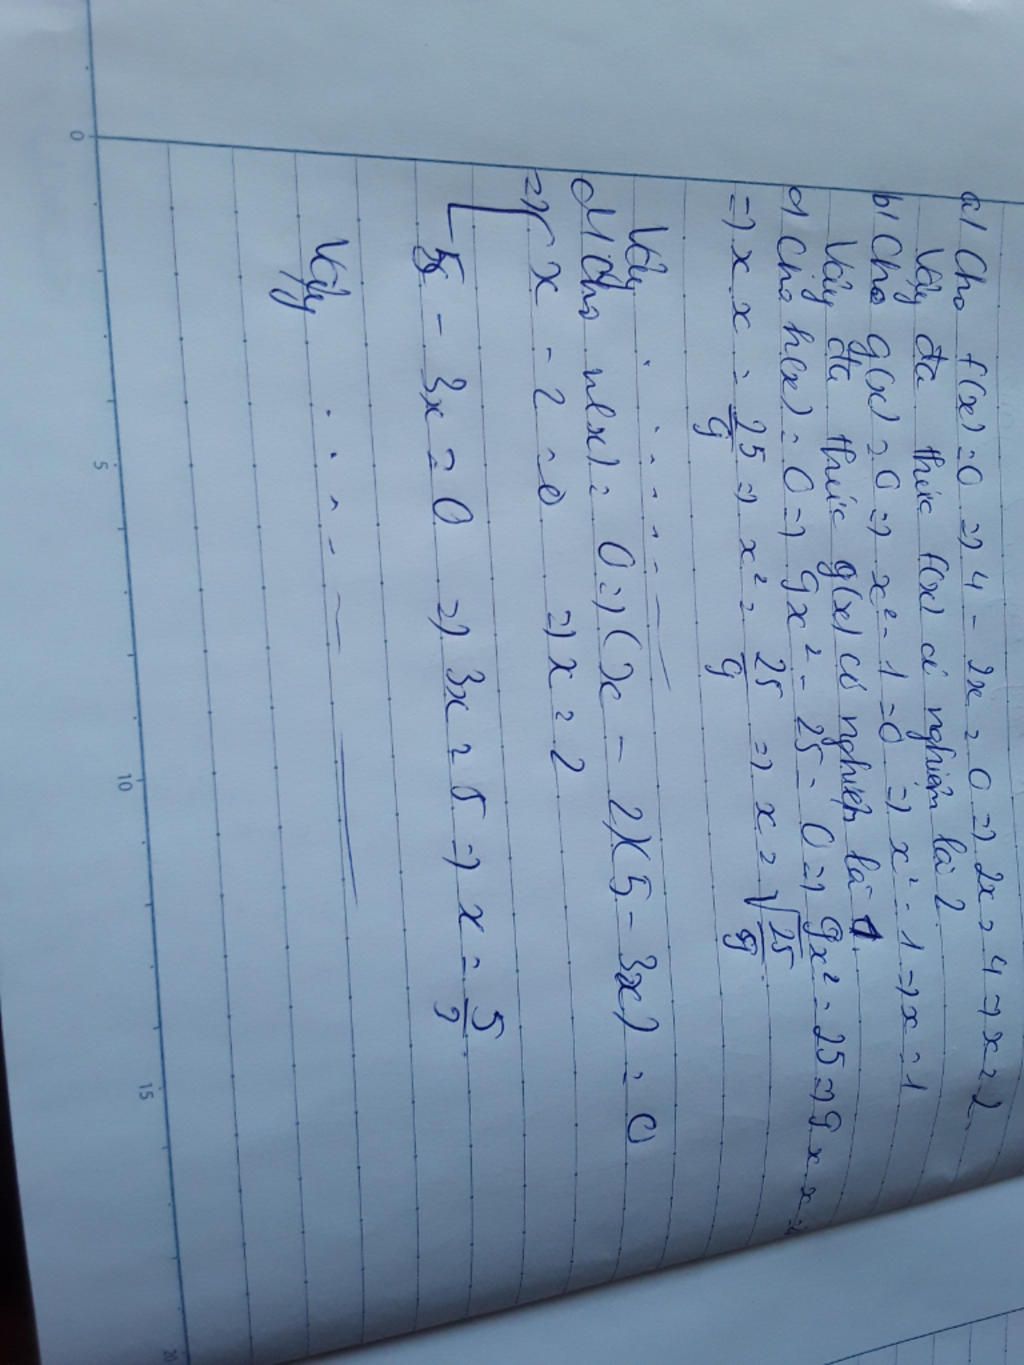 a) Cho f(x) = 0 => 4 - 2x = 0 => 2x = 4 => x = 2
Vậy đa thức f(x) có nghiệm là 2
b) Cho g(x) = 0 => x² - 1 = 0 => x² = 1 => x = 1
Vậy đa thức g(x) có nghiệm là 1
c) Cho h(x) = 0 => 9x² - 25 = 0 => 9x² = 25 => 9 x x =
=> x x = 25/9 => x² = 25/9 => x = √25/9
Vậy . . . . . .
d) Cho n(x) = 0 => (x - 2)(5 - 3x) = 0
=> [ x - 2 = 0 => x = 2
5 - 3x = 0 => 3x = 5 => x = 5/3
Vậy . . . . .
0 5 10 15 20